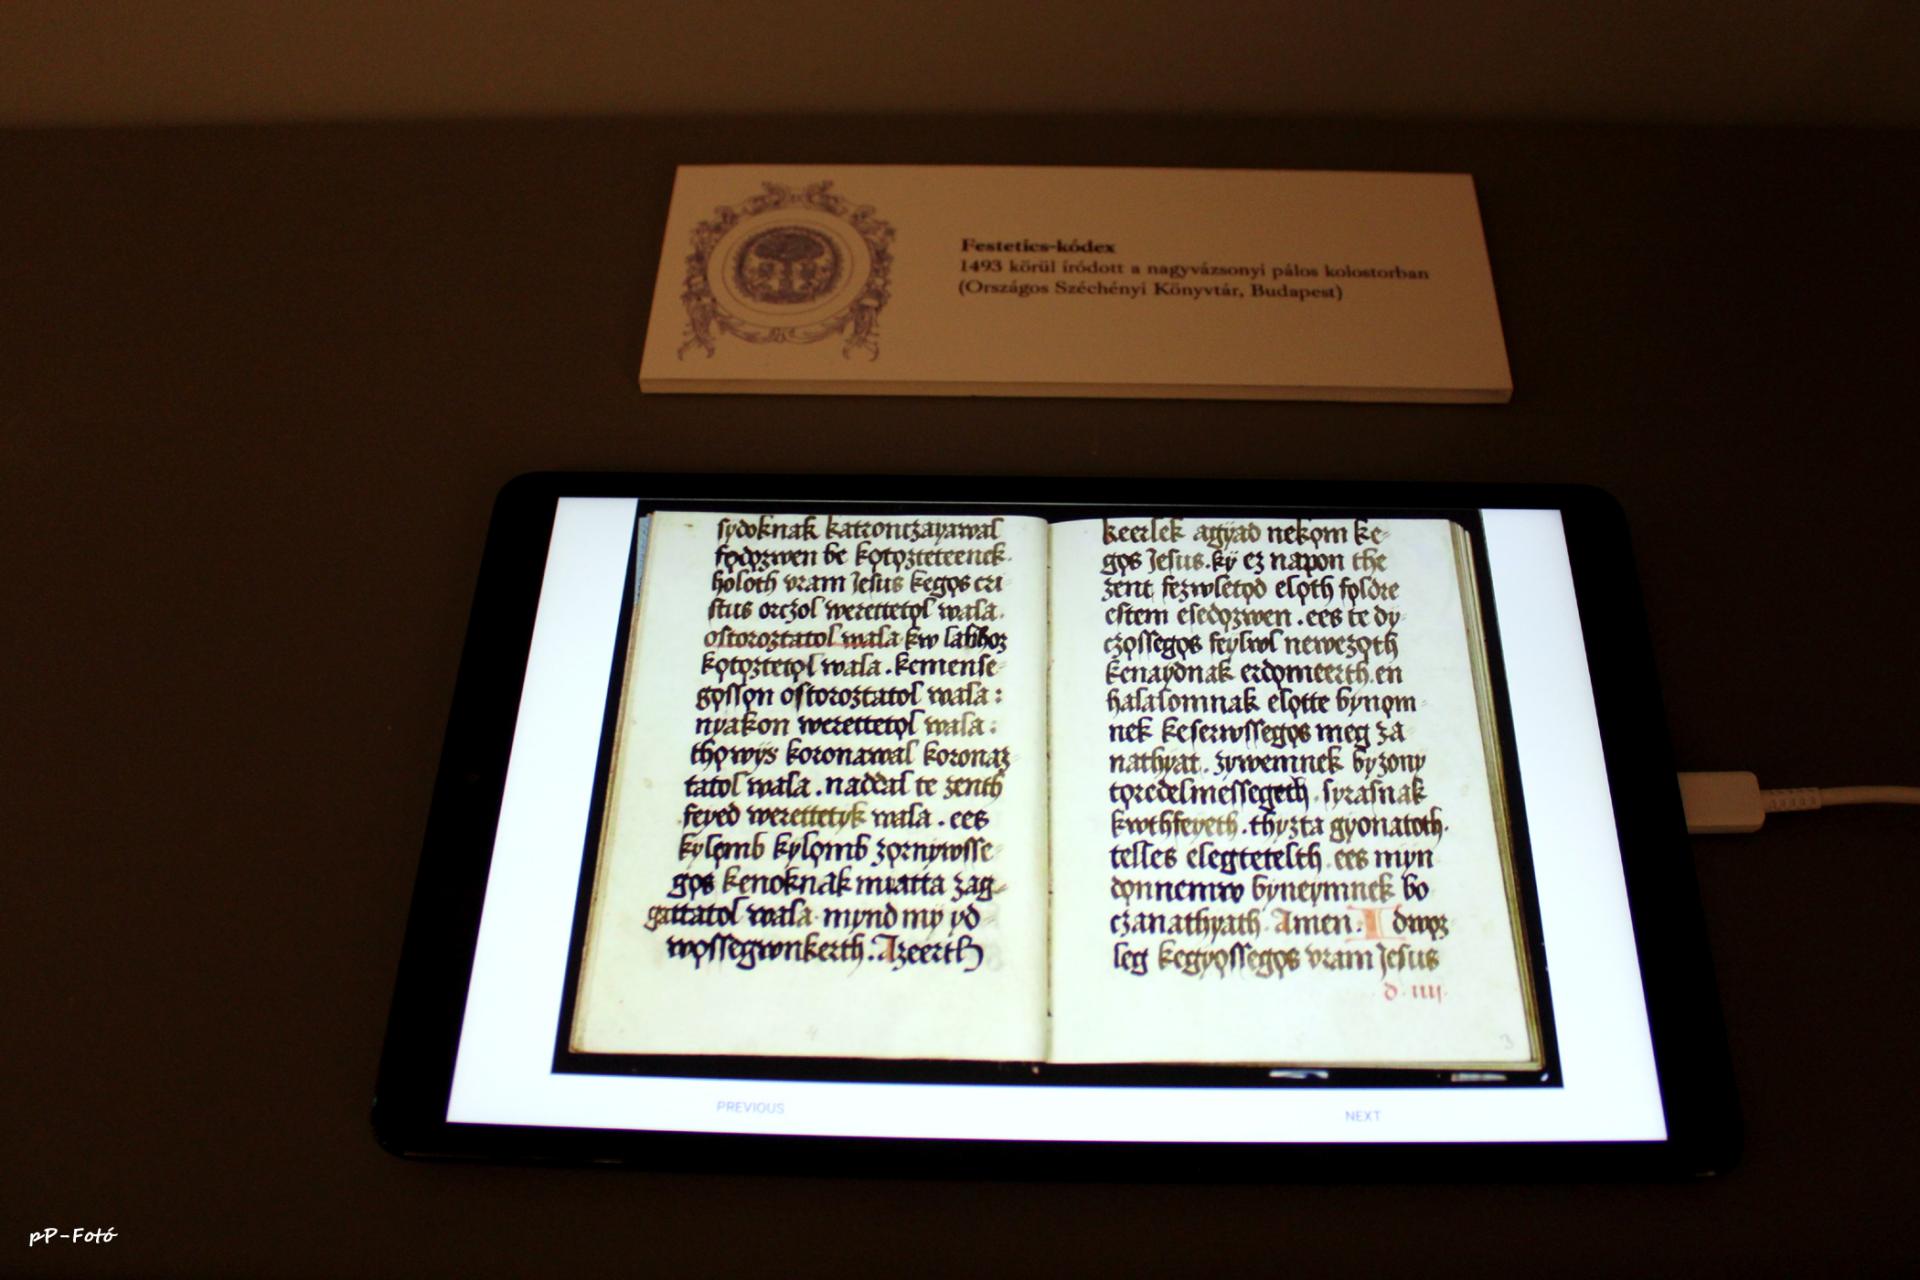 Festetics-kódex
1493 körül íródott a nagyvázsonyi pálos kolostorban
(Országos Széchényi Könyvtár, Budapest)
sydoknak kattonczayawal
fodozwen be kotozteteenek.
holoth vram Jesus kegos cri-
stus orczol werettetol wala.
ostoroztatol wala kw labhoz
kotoztetol wala . kemense-
gosson ostoroztatol wala :
nyakon werettetol wala :
thowys koronawal koronaz
tatol wala . naddal te zenth
feyed werettetyk wala . ees
kylomb kylomb zornywsse-
gos kenoknak miatta zag-
gattatol wala mynd my yd
wossegwnkerth . Azeerth
keerlek agyad nekom ke-
gos Jesus . ky ez napon the
zent fezwletod eloth foldre
estem esedozwen . ees te dy-
czossegos feylwl newezoth
kenaydnak erdomeerth . en
halalomnak elotte bynom-
nek keserwssegos meg za
nathyat . zywemnek byzony
toredelmessegeth . syrasnak
kwthfeyeth . thyzta gyonatoth .
telles elegtetelth . ees myn
don nemw byneymnek bo
czanathyath . Amen . I dwoz
leg kegyossegos vram Jesus
d . iiij .
3
PREVIOUS
NEXT
pP-Fotó